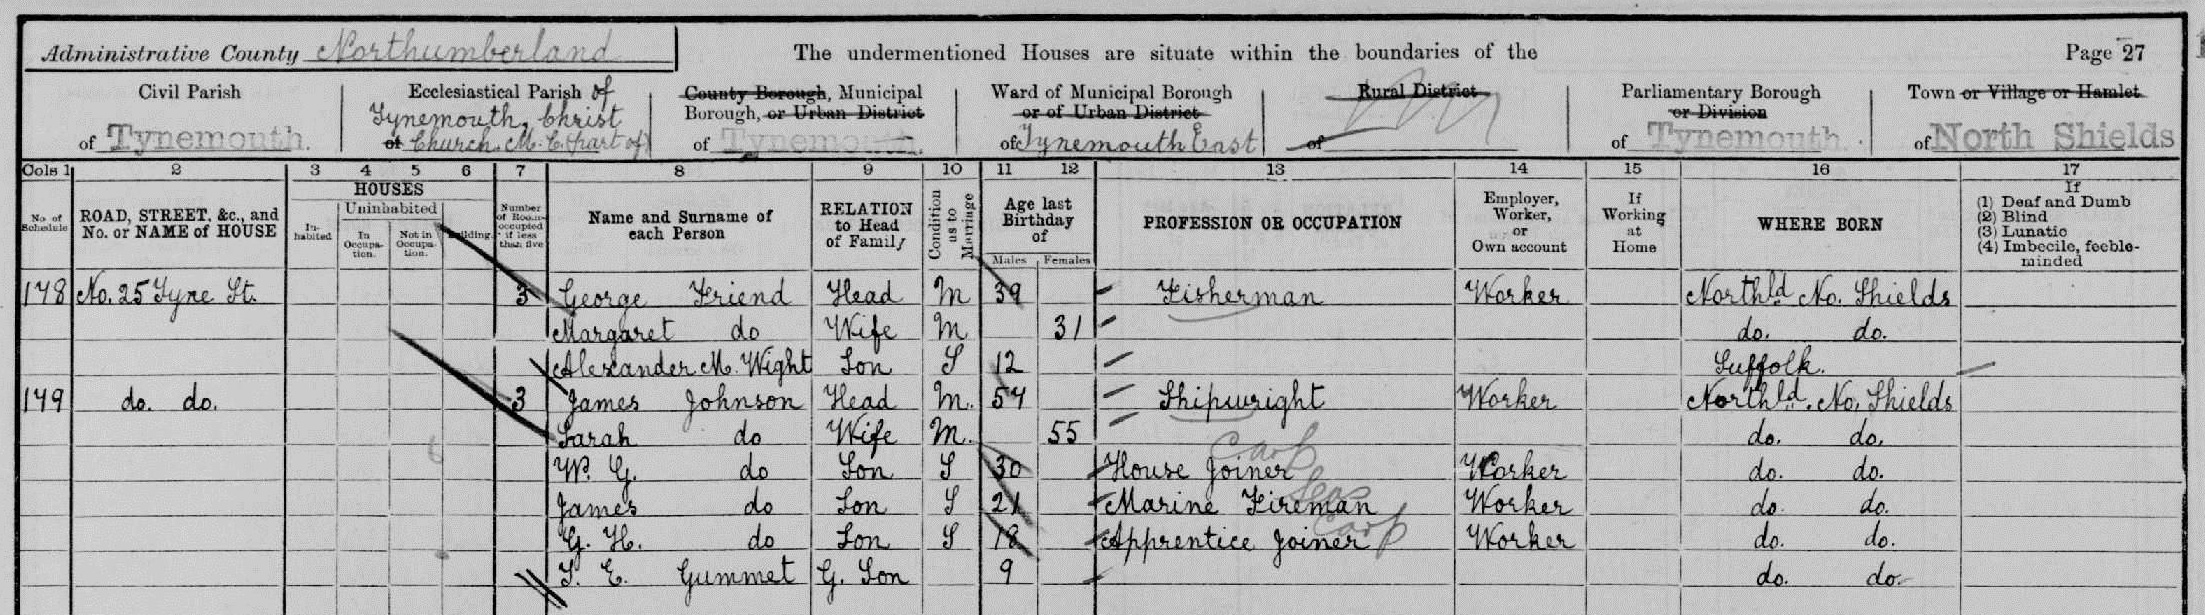 Administrative County Northumberland The undermentioned Houses are situate within the boundaries of the Page 27
Civil Parish Ecclesiastical Parish of County Borough, Municipal Ward of Municipal Borough Rural District Parliamentary Borough Town or Village or Hamlet
Tynemouth, Christ Borough, or Urban District or of Urban District or Division
of Tynemouth. of Church. M. C. (part of) of Tynemouth. of Tynemouth East of of Tynemouth. of North Shields
Cols 1 2 3 4 5 6 7 8 9 10 11 12 13 14 15 16 17
No. of Schedule ROAD, STREET, &c., and No. or NAME of HOUSE HOUSES In-habited Uninhabited In Occupa-tion. Not in Occupa-tion. Building. Number of Rooms occupied if less than five Name and Surname of each Person RELATION to Head of Family Condition as to Marriage Age last Birthday of Males Females PROFESSION OR OCCUPATION Employer, Worker, or Own account If Working at Home WHERE BORN If (1) Deaf and Dumb (2) Blind (3) Lunatic (4) Imbecile, feeble-minded
178 No. 25 Tyne St. 3 George Friend Head M 39 Fisherman Worker Northld No. Shields
Margaret do Wife M 31 do. do.
Alexander M. Wight Son S 12 Suffolk.
179 do. do. 3 James Johnson Head M. 57 Shipwright Worker Northld. No. Shields
Sarah do Wife M. 55 do. do.
Carp
W. G. do Son S 30 House Joiner Worker do. do.
Seas
James do Son S 21 Marine Fireman Worker do. do.
Carp
G. H. do Son S 18 Apprentice Joiner Worker do. do.
Gummet G. Son 9 do. do.